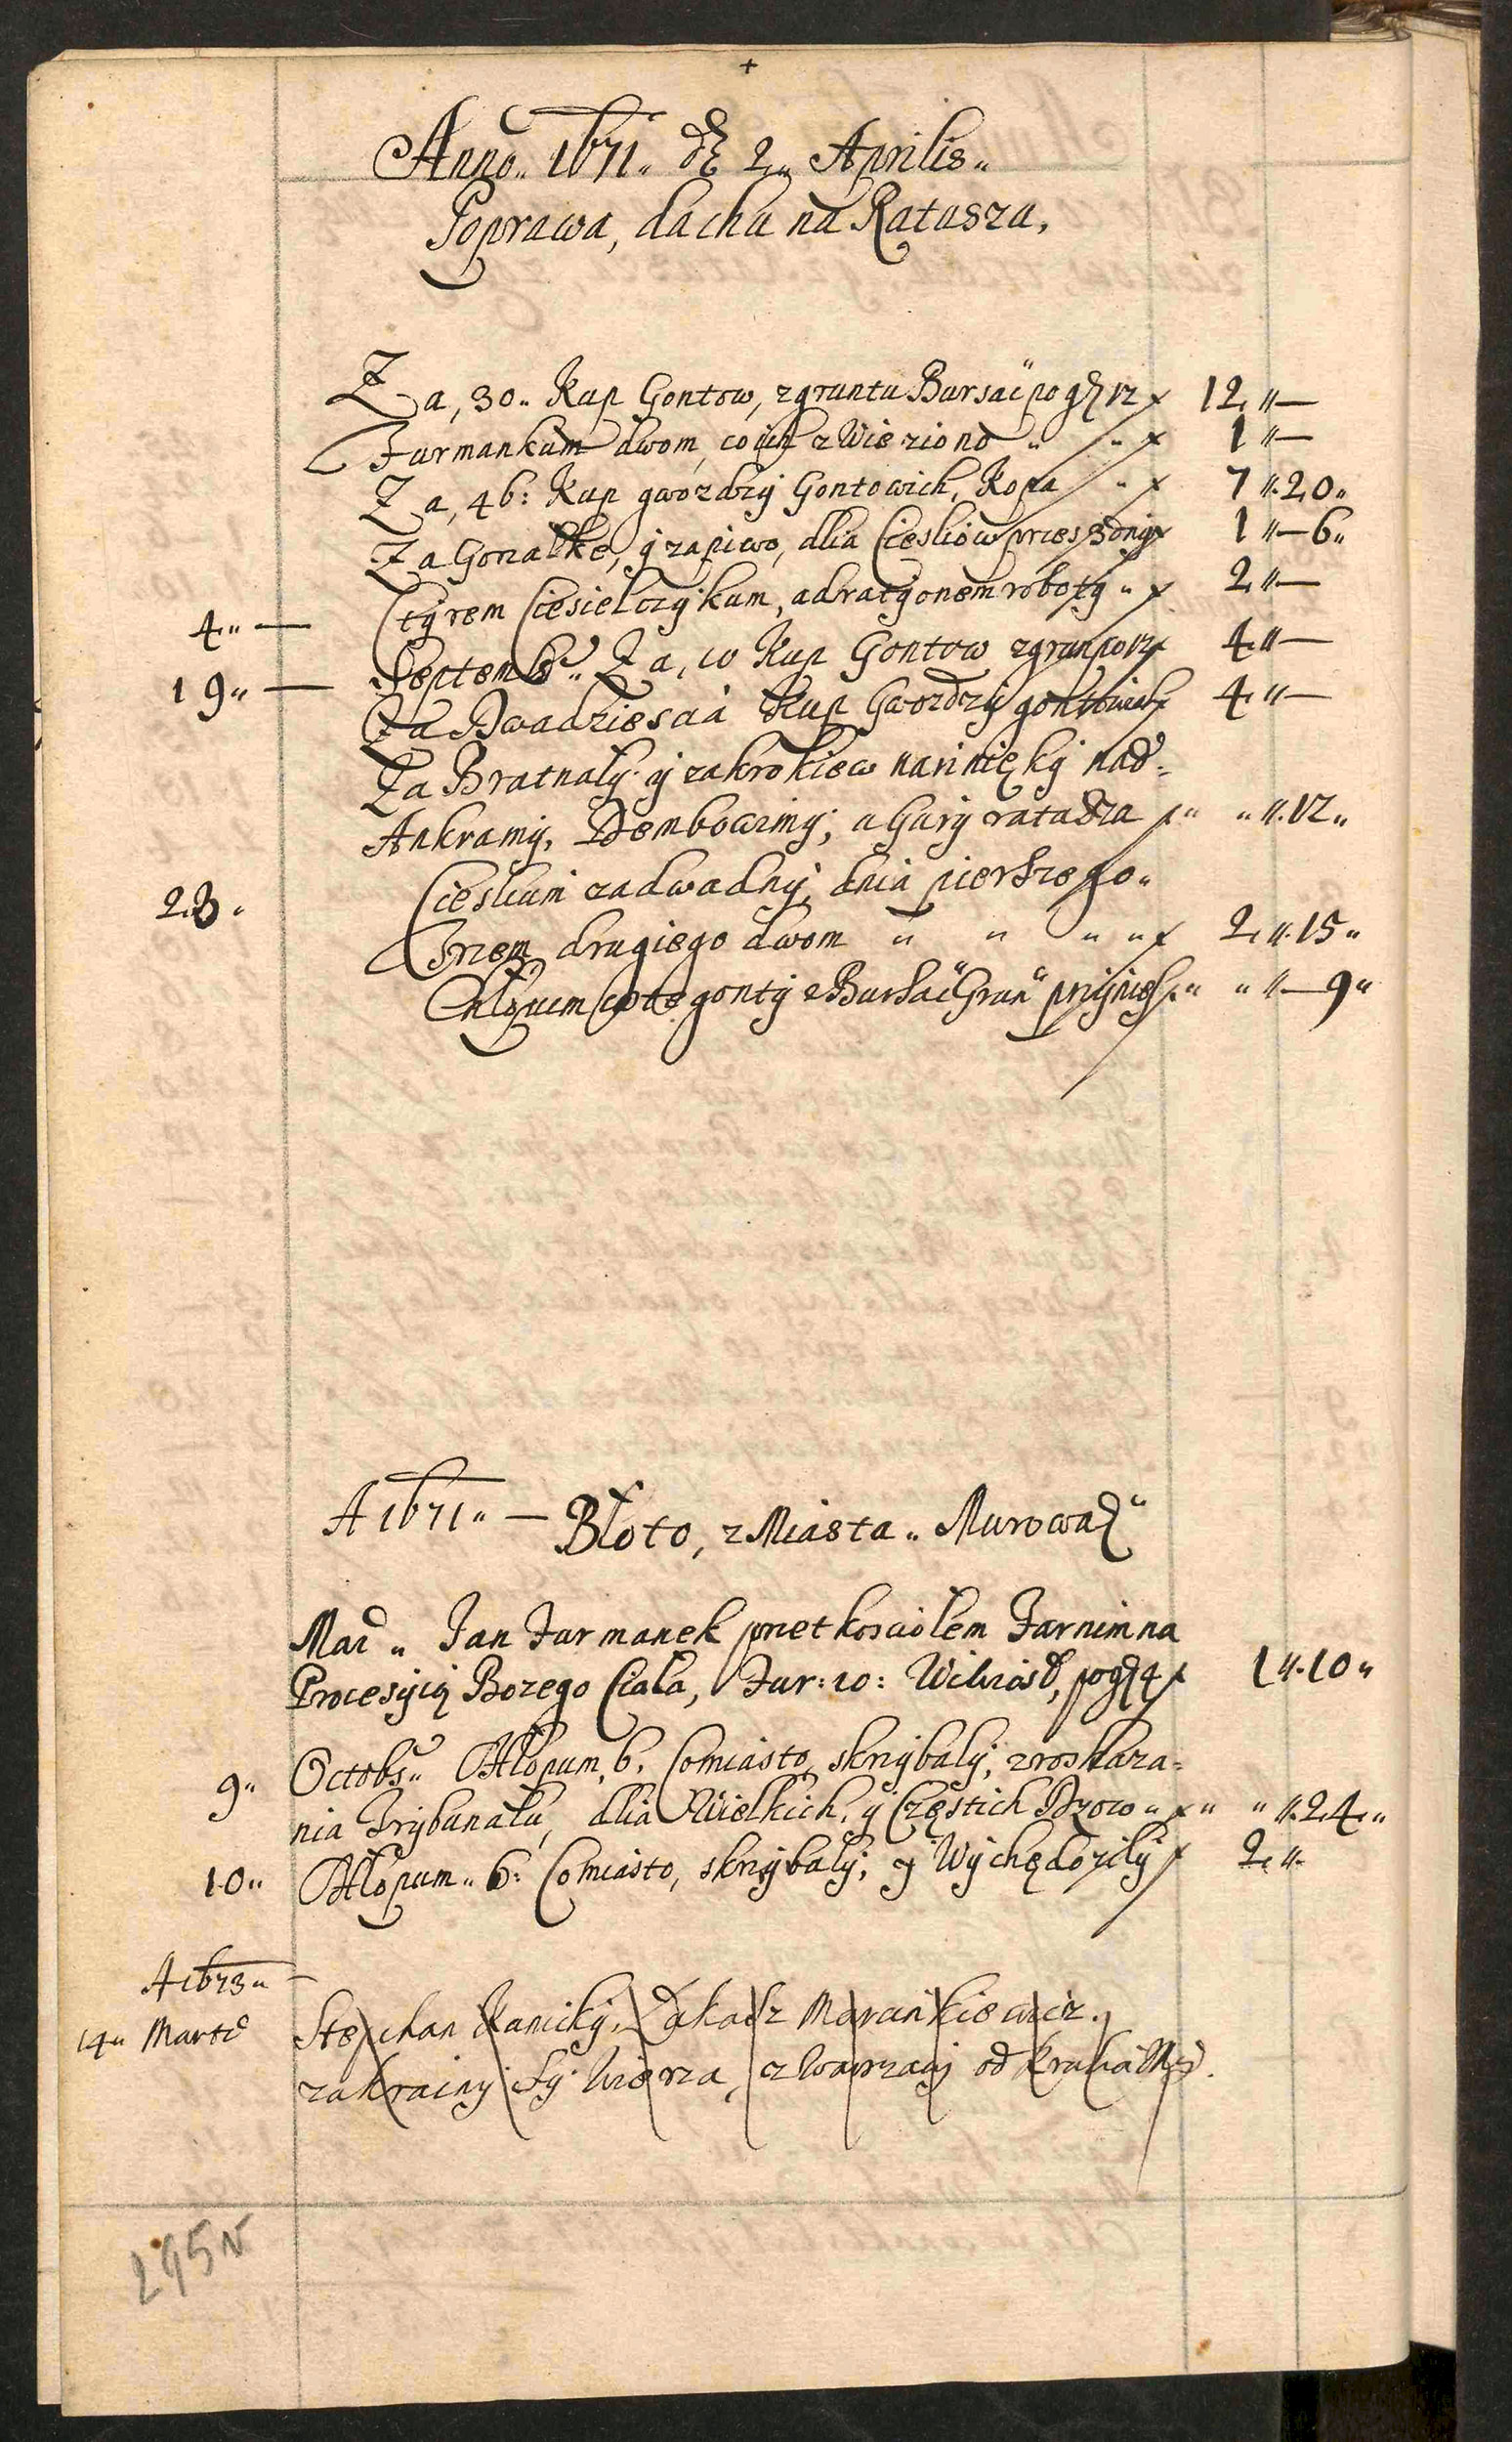 +
Anno „ 1671 „ d. 2 „ Aprilis „
Poprawa, dachu na Ratusza,
Za, 30 „ Kup Gontow, z gruntu Bursaċ po g 12 12 „ —
Furmankum dwom, co ich zwieziono „ „ 1 „ —
Za, 46: Kup gwozdzÿ Gontowich, Kopa „ 7 „ 20 „
Za Gorzalke, ÿ za piwo, dlia Ciesliow przes 3 dnÿ 1 „ — 6 „
Ctÿrem Ciesielczÿkum, robotÿ „ 2 „ —
4 „ — Septemb „ Za, 10 Kup Gontow z grun po 12 4 „ —
19 „ — Za Dwadziescia Kup Gwozdzÿ gontowich 4 „ —
Za Bratnalÿ ÿ za krokiew nad =
Ankramÿ, Dembowimÿ, u Gurÿ ratusza „ „ „ 12 „
23 „ Ciesliam za dwa dnÿ, dnia pierszego „
Trzem drugiego dwom „ „ „ „ 2 „ 15 „
Chlopum co te gontÿ z Bursaċ Grun prÿnies „ „ „ — 9 „
A 1671 „ — Błoto, z Miasta „ Murowa
Mad „ Jan Furmanek pret kosciolem Farnim na
Procesÿią Bozego Ciala, Fur: 10: Wiwiosl, po g 4 1 „ 10 „
9 „ Octobs „ Chlopum, 6, Co miasto, skrÿbalÿ, z roskaza =
nia Trÿbunalu, dlia Wielkich, ÿ Częstich Dzow „ „ „ 24 „
10 „ Chlopum „ 6: Co miasto, skrÿbalÿ, ÿ Wÿchędozilÿ 2 „
A 1673 „ —
14 „ Marti Stephan Kanickÿ, Lukasz Marunkiewicz.
295v